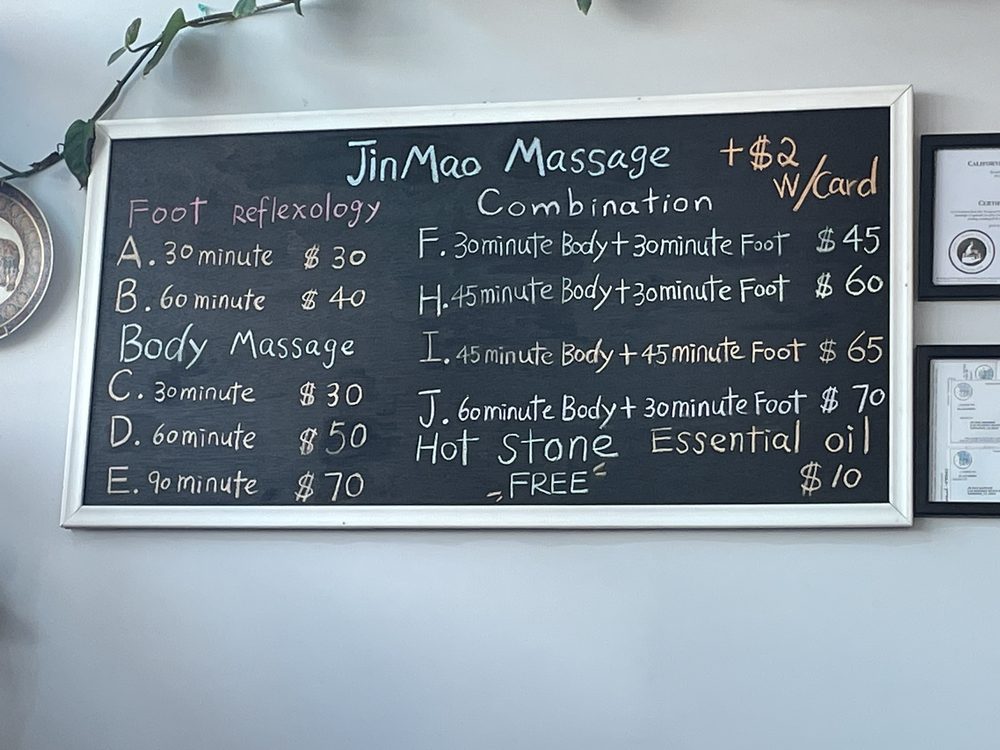 JinMao Massage
+$2
w/Card
Foot Reflexology
A. 30 minute $ 30
B. 60 minute $ 40
Body Massage
C. 30minute $ 30
D. 60minute $ 50
E. 90 minute $ 70
Combination
F. 30minute Body + 30minute Foot $ 45
H. 45minute Body + 30minute Foot $ 60
I. 45minute Body + 45minute Foot $ 65
J. 60minute Body + 30minute Foot $ 70
Hot Stone
FREE
Essential oil
$ 10